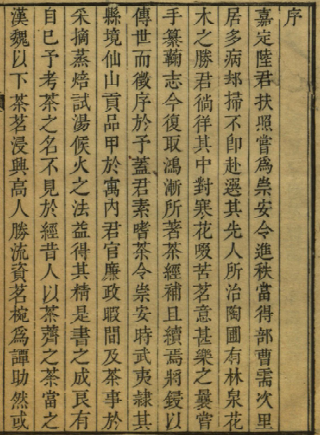 序
嘉定陸君扶照嘗爲崇安令進秩當得部曹需次里
居多病郄掃不卽赴選其先人所治陶圃有林泉花
木之勝君徜徉其中對寒花啜苦茗意甚樂之曩嘗
手纂鞠志今復取鴻漸所著茶經補且續焉將鋟以
傳世而徵序於予蓋君素嗜茶令崇安時武夷隸其
縣境仙山貢品甲於寓內君官廉政暇間及茶事於
采摘蒸焙試湯候火之法益得其精是書之成良有
自已予考茶之名不見於經昔人以茶薺之茶當之
漢魏以下茶茗浸興高人勝流資茗椀爲譚助然或